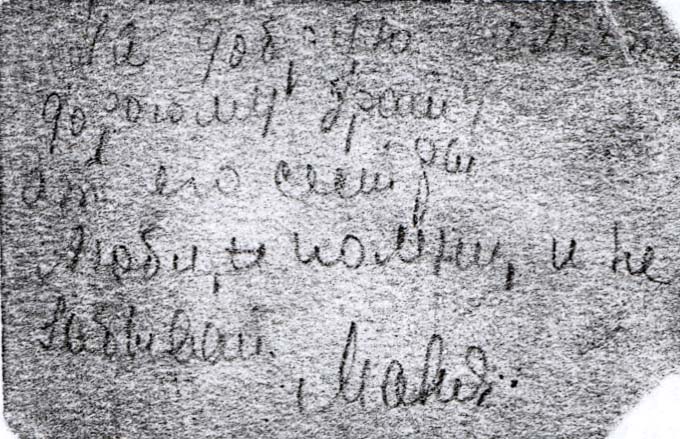 На добрую память
дорогому брату
от его сестры
Люби, и помни, и не
забывай.